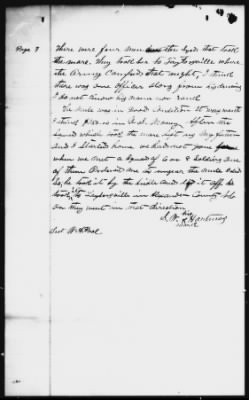 Page 3
There were four men in the squad that took
the mare. They took her to Taylorsville where
the Army Camped that night, I think
there was one officer along from his dress
I do not know his name nor rank
The Mule was in Good Condition It was worth
I think $ in U.S. Money. After the
Squad which took the mare left us My father
and I Started home we had not gone far
when we met a Squad of 6 or 8 Soldiers one
of them Ordered me to unsaddle the mule I did
So, he took it by the bridle and led it off he
took it to Taylorsville in Alexander County N.C
or they went in that direction
his
S. W. X Hartness
mark
Test W. H.